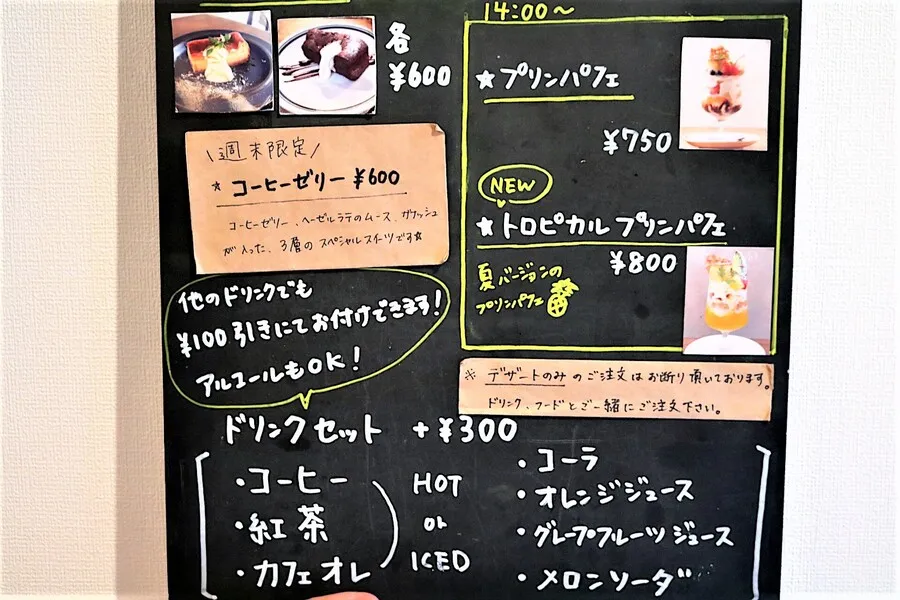 各
¥600
\週末限定/
★ コーヒーゼリー ¥600
コーヒーゼリー、ヘーゼルラテのムース、ガナッシュ
が入った、3層のスペシャルスイーツです☆
14:00〜
★プリンパフェ
¥750
NEW
★トロピカルプリンパフェ
¥800
夏バージョンの
プリンパフェ
※ デザートのみのご注文はお断り頂いております。
ドリンク、フードとご一緒にご注文下さい。
他のドリンクでも
¥100引きにてお付けできます!
アルコールもOK!
ドリンクセット +¥300
・コーヒー
・紅茶
・カフェオレ
HOT
or
ICED
・コーラ
・オレンジジュース
・グレープフルーツジュース
・メロンソーダ